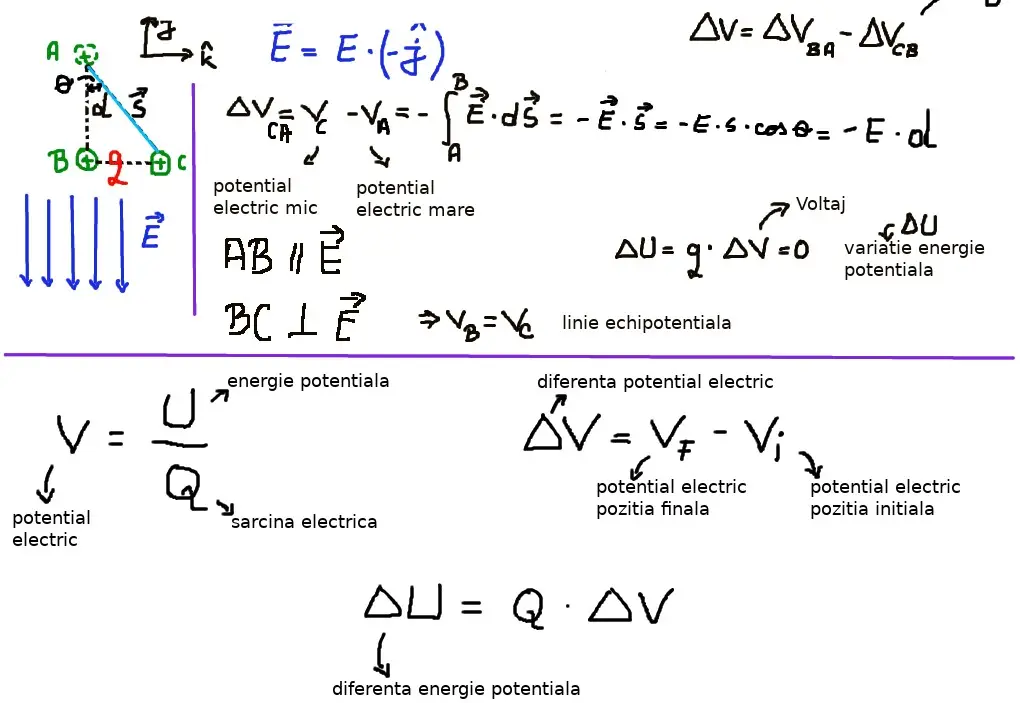 A
ĵ
k̂
E⃗ = E · (-ĵ)
ΔV = ΔV_BA - ΔV_CB
θ
d
s⃗
ΔV_CA = V_C - V_A = - ∫_A^B E⃗ · ds⃗ = - E⃗ · s⃗ = -E · s · cos θ = - E · d
B
q
C
potential
electric mic
potential
electric mare
E⃗
Voltaj
ΔU = q · ΔV = 0
ΔU
variatie energie
potentiala
AB ∥ E⃗
BC ⊥ E⃗
⇒ V_B = V_C
linie echipotentiala
energie potentiala
V = U / Q
potential
electric
sarcina electrica
diferenta potential electric
ΔV = V_F - V_i
potential electric
pozitia finala
potential electric
pozitia initiala
ΔU = Q · ΔV
diferenta energie potentiala